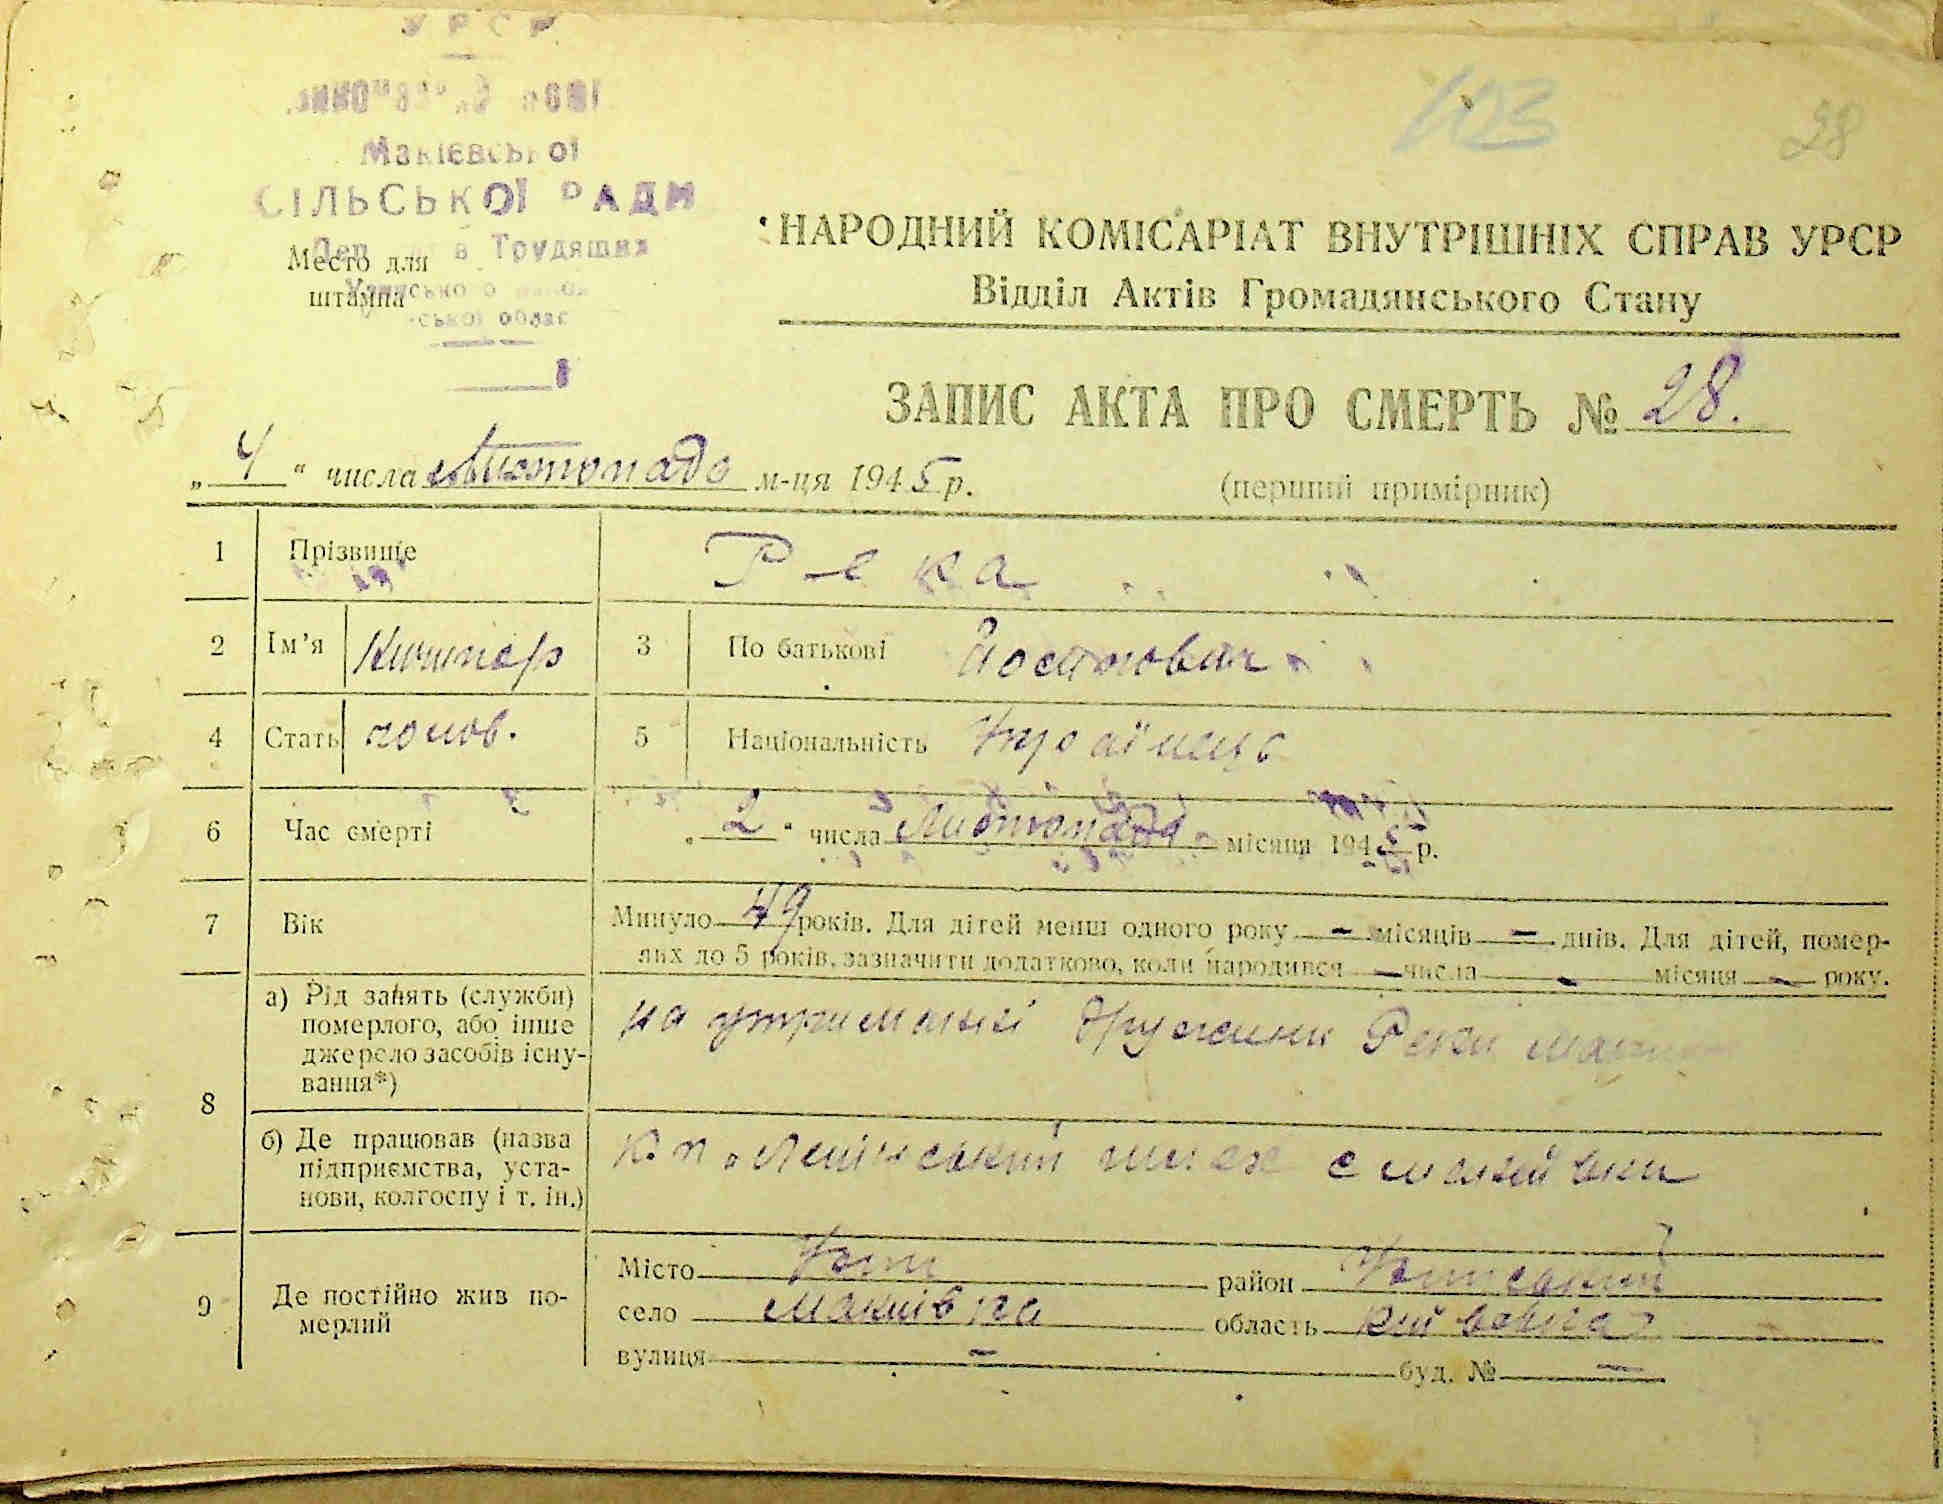 УРСР
Макіевської
СІЛЬСЬКОЇ РАДИ
Деп в Трудящих
Место для
штампа
ської облас
123
28
НАРОДНИЙ КОМІСАРІАТ ВНУТРІШНІХ СПРАВ УРСР
Відділ Актів Громадянського Стану
ЗАПИС АКТА ПРО СМЕРТЬ № 28.
„ 4 “ числа Листопада м-ця 1945 р.
(перший примірник)
1 Прізвище Река
2 Ім’я 3 По батькові
4 Стать чолов. 5 Національність Українець
6 Час смерті „ 2 “ числа Листопада місяця 1945 р.
7 Вік Минуло 49 років. Для дітей менш одного року – місяців – днів. Для дітей, помер-
лих до 5 років, зазначити додатково, коли народився – числа – місяця – року.
8 а) Рід занять (служби)
померлого, або інше
джерело засобів існу-
вання*)
на утриманні дружини Реки
б) Де працював (назва
підприємства, уста-
нови, колгоспу і т. ін.)
к. п. „Ленінський шлях с Макіївки
9 Де постійно жив по-
мерлий
Місто Узин район Узинський
село Макиівка область Київська
вулиця – буд. № –